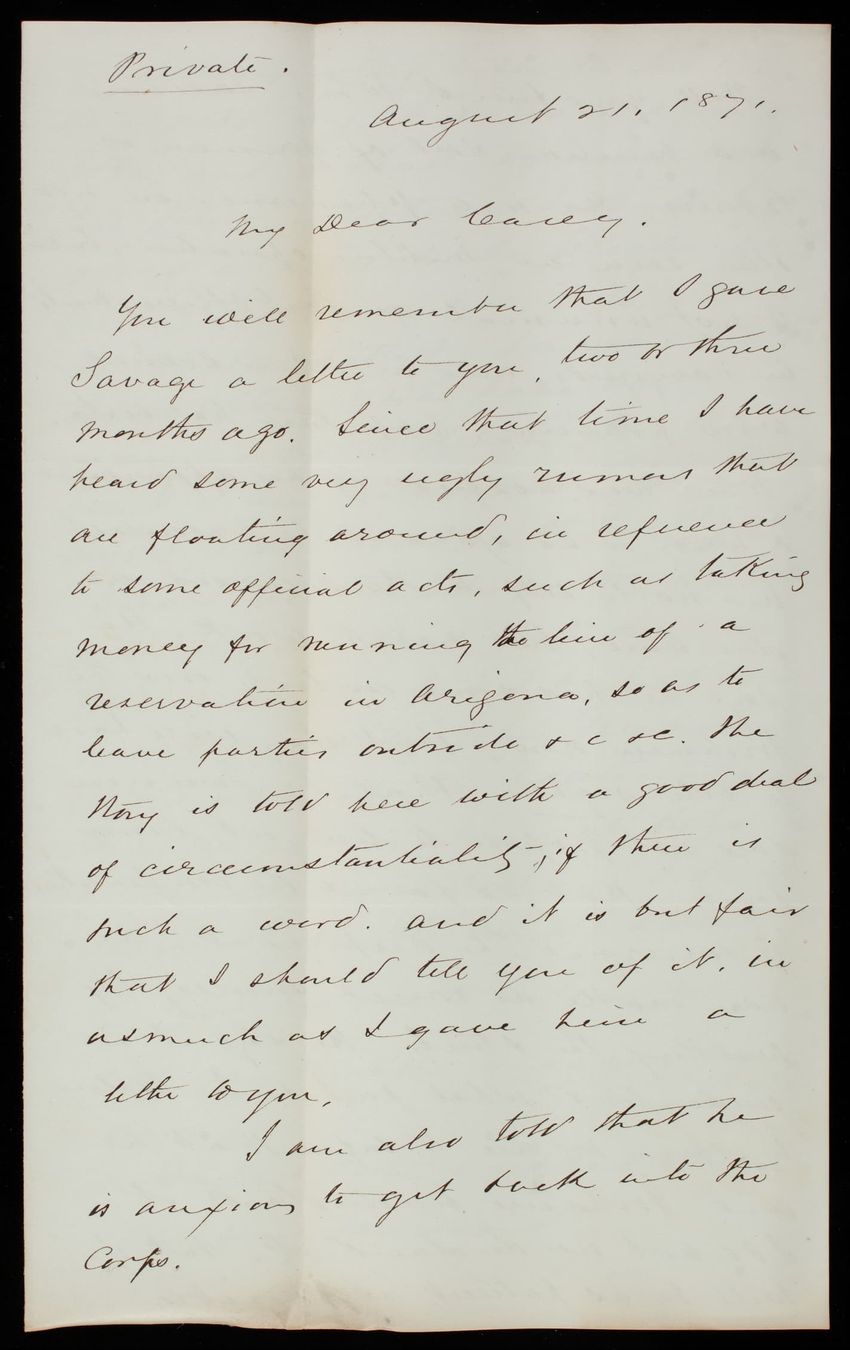 Private.
August 21, 1871.
My Dear Casey.
You will remember that I gave
Savage a letter to you, two or three
months ago. Since that time I have
heard some very ugly rumors that
are floating around, in reference
to some official acts, such as taking
money for running the line of a
reservation in Arizona, so as to
leave parties outside &c &c. The
story is told here with a good deal
of circumstantiality, if there is
such a word. and it is but fair
that I should tell you of it, in
asmuch as I gave him a
letter to you.
I am also told that he
is anxious to get back into the
Corps.